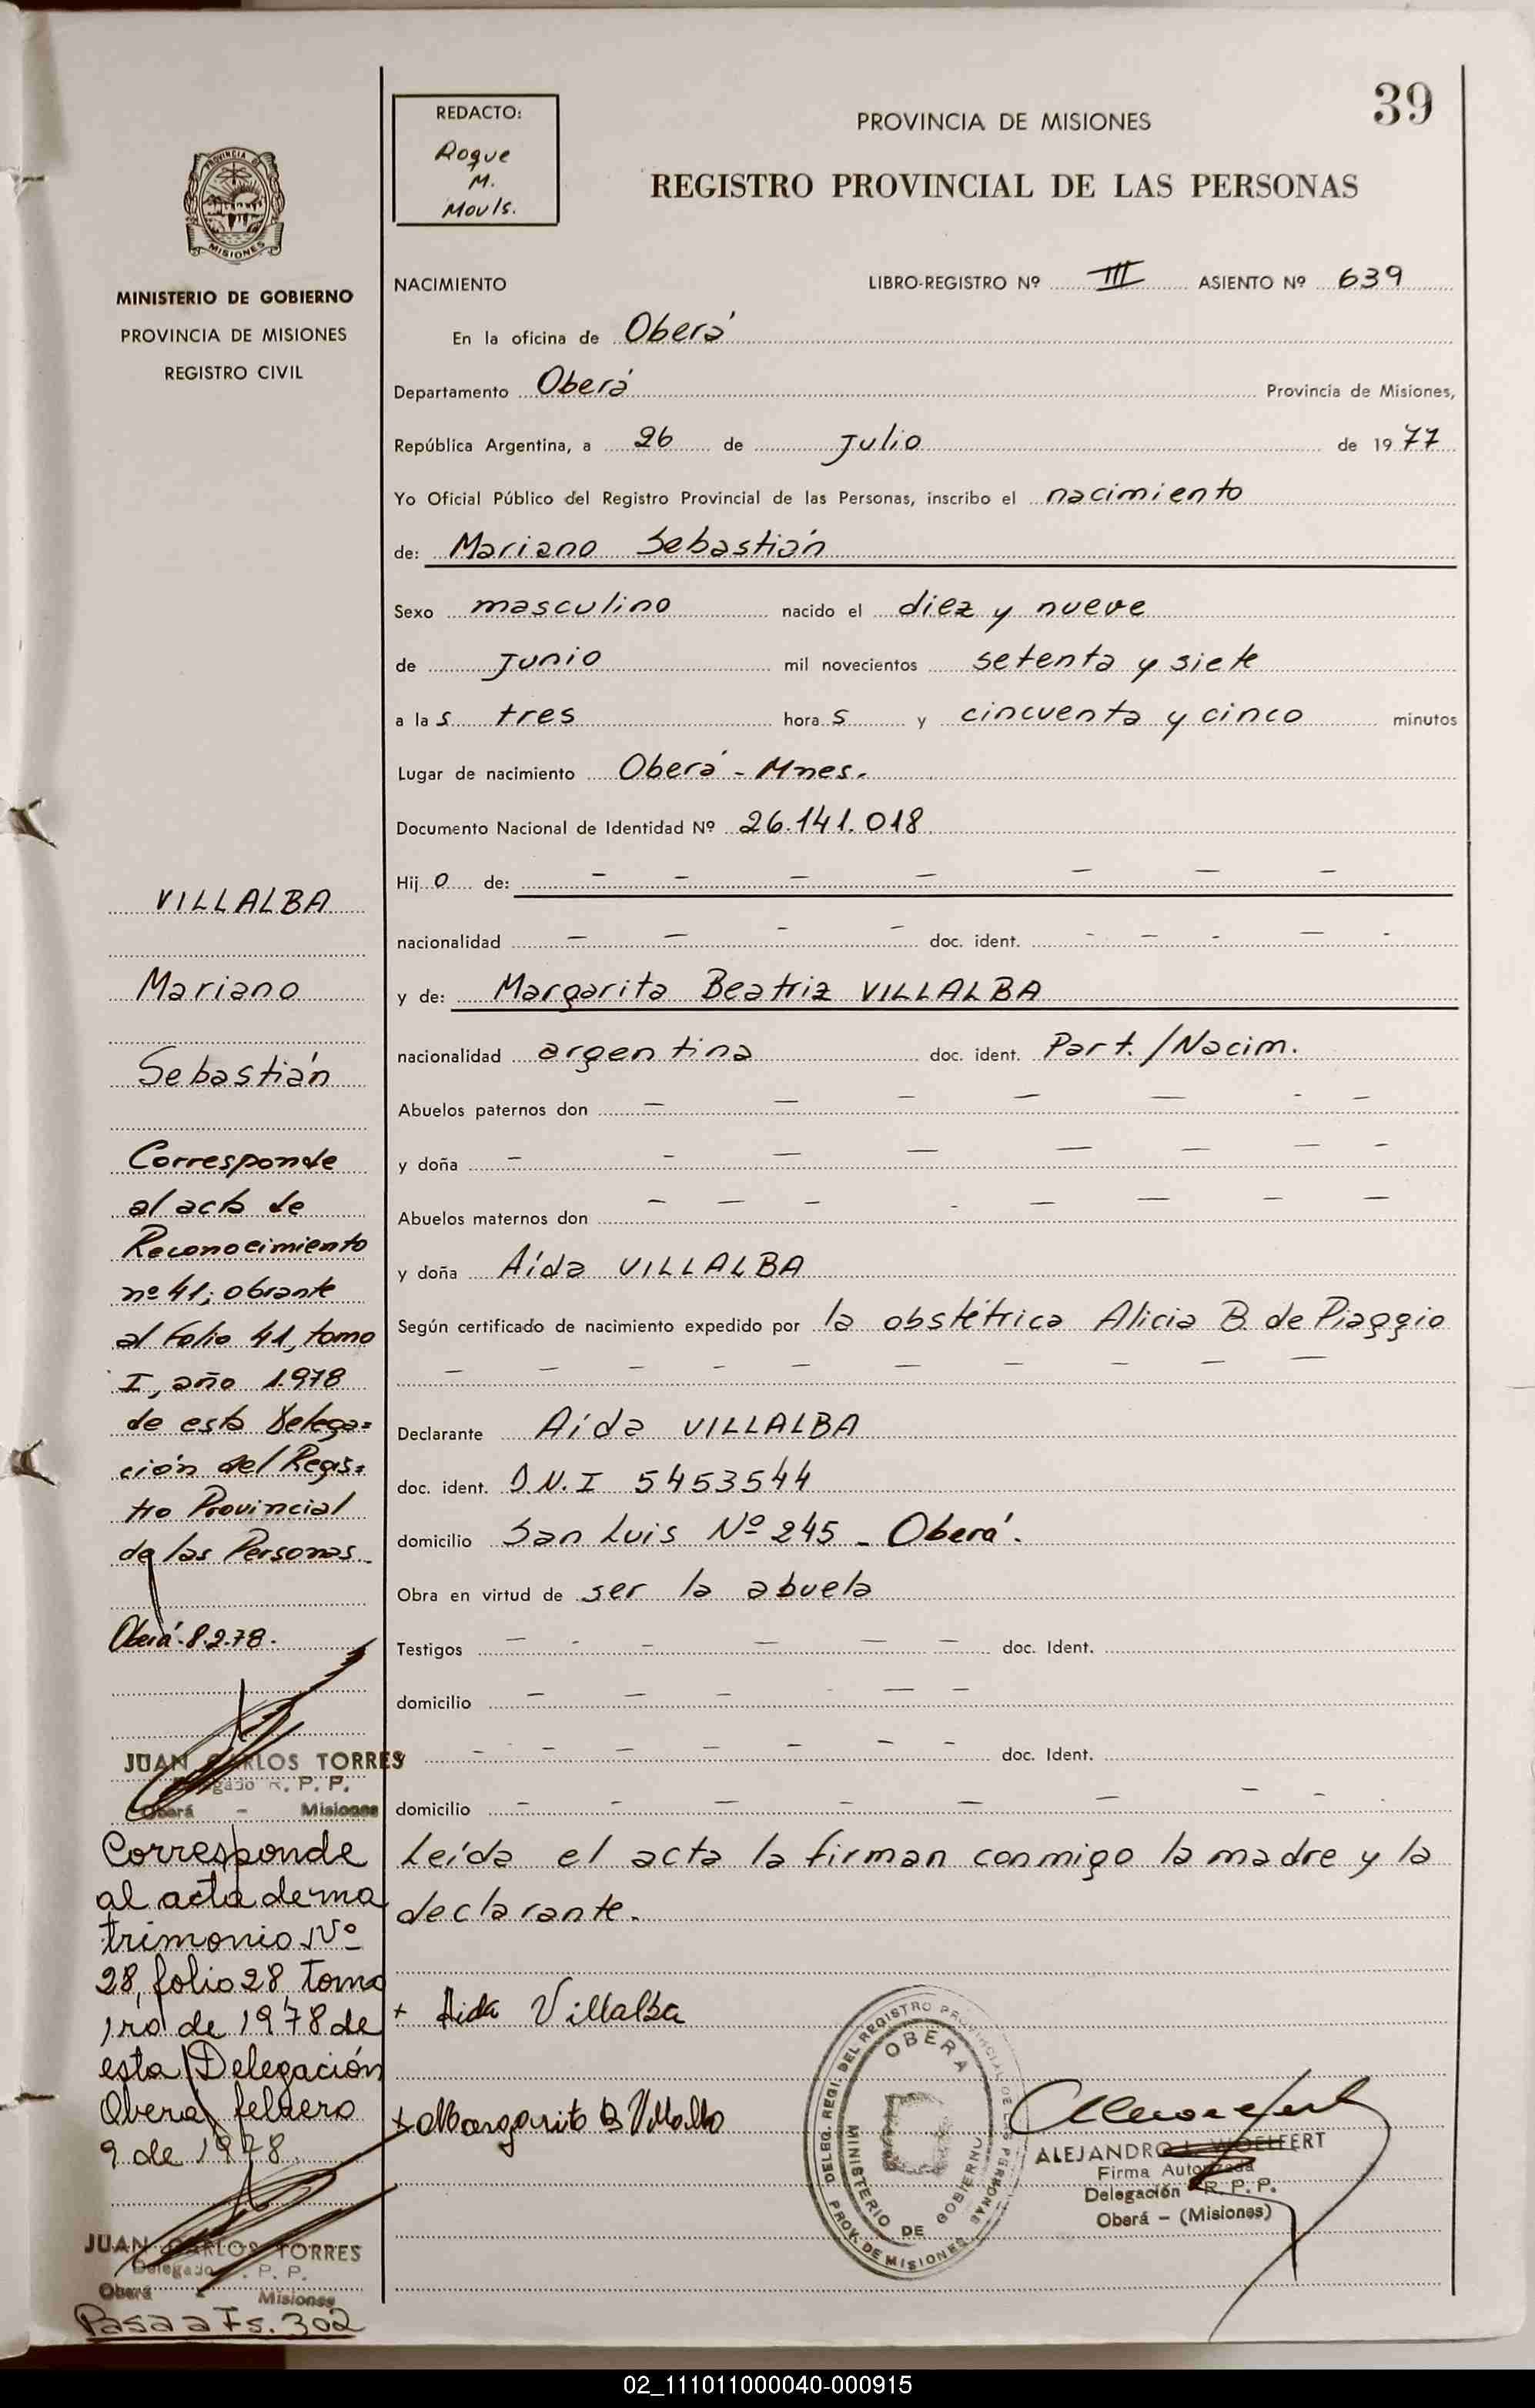 39
REDACTO:
Roque
M.
Mouls.
PROVINCIA DE MISIONES
REGISTRO PROVINCIAL DE LAS PERSONAS
PROVINCIA DE
MISIONES
MINISTERIO DE GOBIERNO
PROVINCIA DE MISIONES
REGISTRO CIVIL
NACIMIENTO LIBRO-REGISTRO Nº III ASIENTO Nº 639
En la oficina de Oberá
Departamento Oberá Provincia de Misiones,
República Argentina, a 26 de Julio de 1977
Yo Oficial Público del Registro Provincial de las Personas, inscribo el nacimiento
de: Mariano Sebastián
Sexo masculino nacido el diez y nueve
de Junio mil novecientos setenta y siete
a las tres horas y cincuenta y cinco minutos
Lugar de nacimiento Oberá - Mnes.
Documento Nacional de Identidad Nº 26.141.018
Hijo de: - - - - - - -
nacionalidad - - - - doc. ident. - - - - -
y de: Margarita Beatriz VILLALBA
nacionalidad argentina doc. ident. Part./Nacim.
Abuelos paternos don - - - - - - -
y doña - - - - - - - -
Abuelos maternos don - - - - - - - -
y doña Aída VILLALBA
Según certificado de nacimiento expedido por la obstétrica Alicia B. de Piaggio
- - - - - - - - - -
Declarante Aída VILLALBA
doc. ident. D.N.I 5453544
domicilio San Luis Nº 245 - Oberá.
Obra en virtud de ser la abuela
Testigos - - - - - - doc. Ident.
domicilio - - - - - -
y - - - - - - - doc. Ident.
domicilio - - - - - - - - -
Leída el acta la firman conmigo la madre y la
declarante.
+ Aida Villalba
x Margarita B Villalba
DELEG. REGI. DEL REGISTRO PROVINCIAL DE LAS PERSONAS
OBERA
MINISTERIO DE GOBIERNO
PROV. DE MISIONES
ALEJANDRO L. WOELFERT
Firma Autorizada
Delegación R. P. P.
Oberá - (Misiones)
VILLALBA
Mariano
Sebastián
Corresponde
al acta de
Reconocimiento
nº 41; obrante
al Folio 41, tomo
I, año 1.978
de esta Delega=
ción del Regis=
tro Provincial
de las Personas.
Oberá-8.2.78.
JUAN CARLOS TORRES
Delegado R. P. P.
Oberá - Misiones
Corresponde
al acta de ma
trimonio Nº
28, folio 28, Tomo
1ro de 1978 de
esta Delegación
Oberá, febrero
9 de 1978.
JUAN CARLOS TORRES
Delegado R. P. P.
Oberá - Misiones
Pasa a Fs. 302
02_111011000040-000915